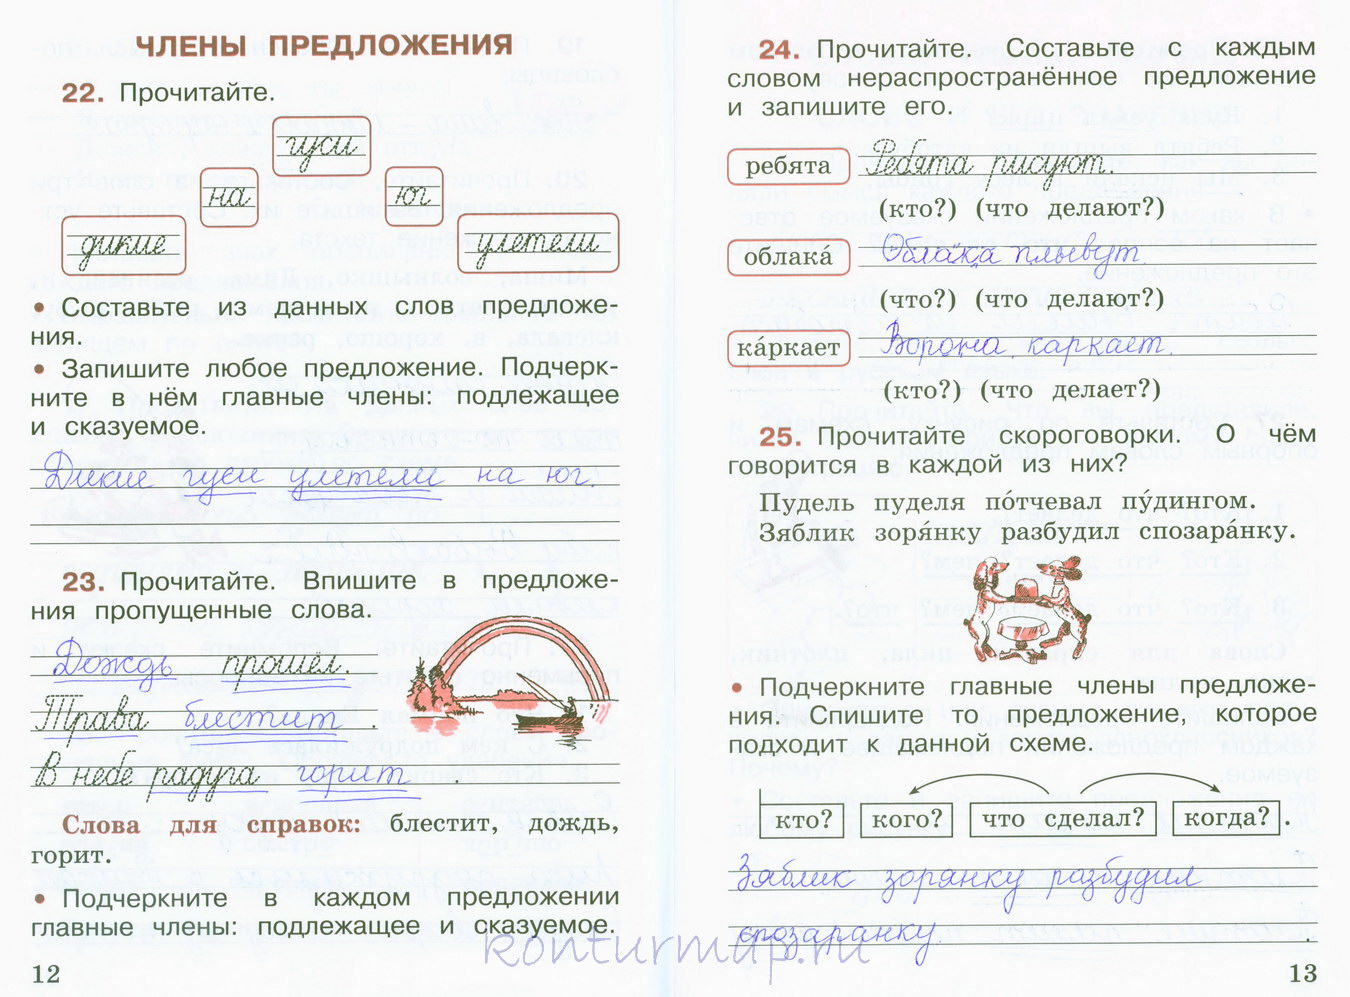 ЧЛЕНЫ ПРЕДЛОЖЕНИЯ
22. Прочитайте.
гуси
на
юг
дикие
улетели
• Составьте из данных слов предложе-
ния.
• Запишите любое предложение. Подчерк-
ните в нём главные члены: подлежащее
и сказуемое.
Дикие гуси улетели на юг.
23. Прочитайте. Впишите в предложе-
ния пропущенные слова.
Дождь прошёл.
Трава блестит.
В небе радуга горит.
Слова для справок: блестит, дождь,
горит.
• Подчеркните в каждом предложении
главные члены: подлежащее и сказуемое.
12
24. Прочитайте. Составьте с каждым
словом нераспространённое предложение
и запишите его.
ребята Ребята рисуют.
(кто?) (что делают?)
облака́ Облака плывут.
(что?) (что делают?)
ка́ркает Ворона каркает.
(кто?) (что делает?)
25. Прочитайте скороговорки. О чём
говорится в каждой из них?
Пудель пуделя по́тчевал пу́дингом.
Зяблик зоря́нку разбудил спозара́нку.
• Подчеркните главные члены предложе-
ния. Спишите то предложение, которое
подходит к данной схеме.
кто? кого? что сделал? когда? .
Зяблик зорянку разбудил
спозаранку.
13
konturmap.ru